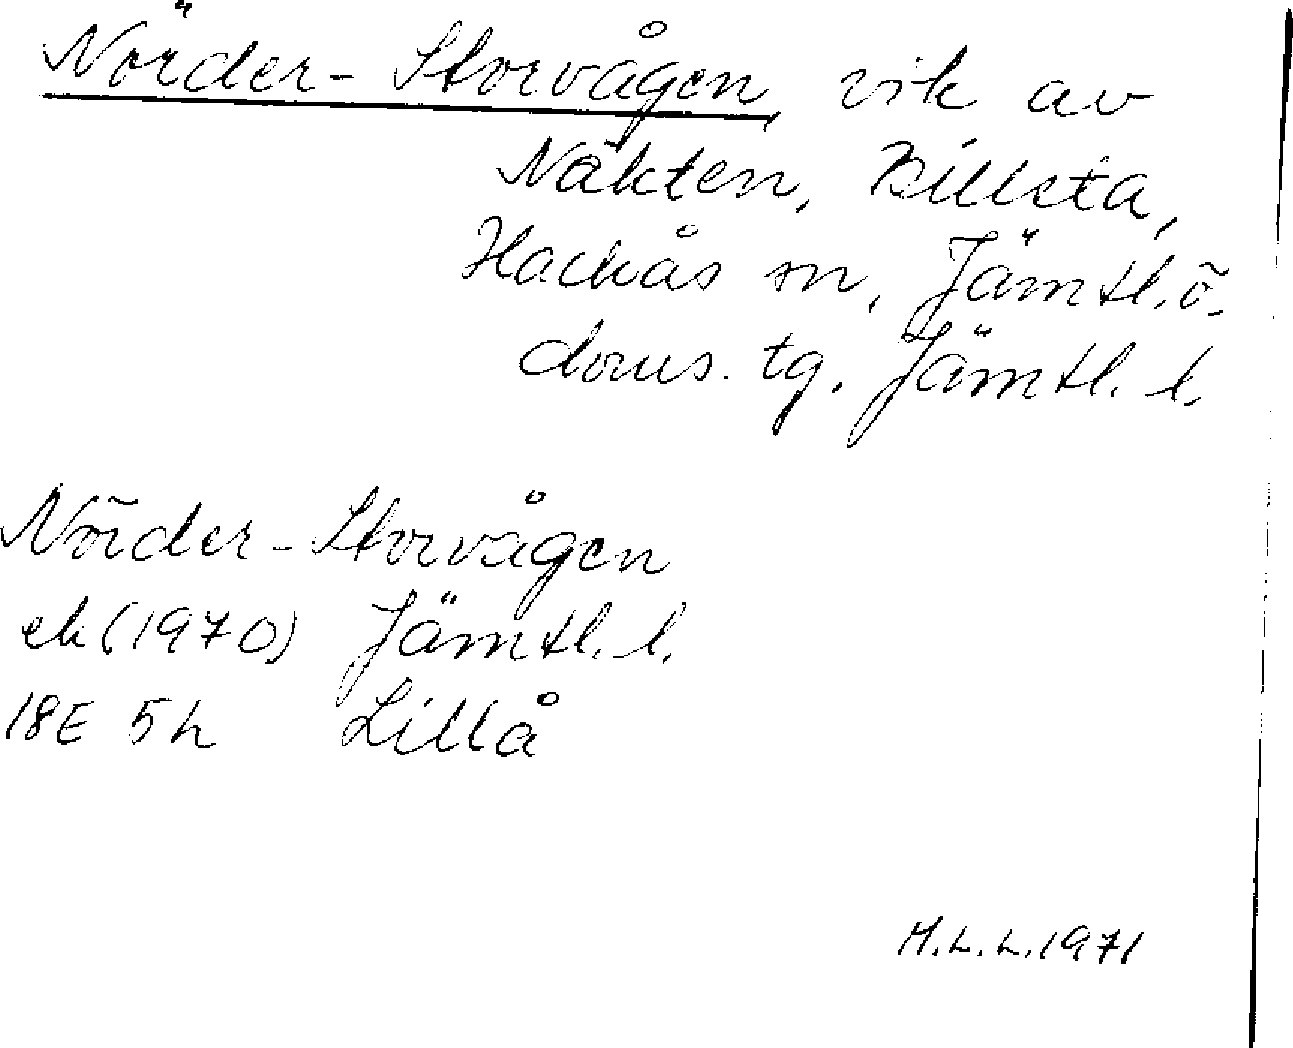 Nörder-Storvågen, vik av
Näkten, Billsta,
Hackås sn, Jämtl. ö.
doms. tg, Jämtl. l.
Nörder-Storvågen
ek (1970) Jämtl. l.
18E 5h Lillå
M.L.L. 1971